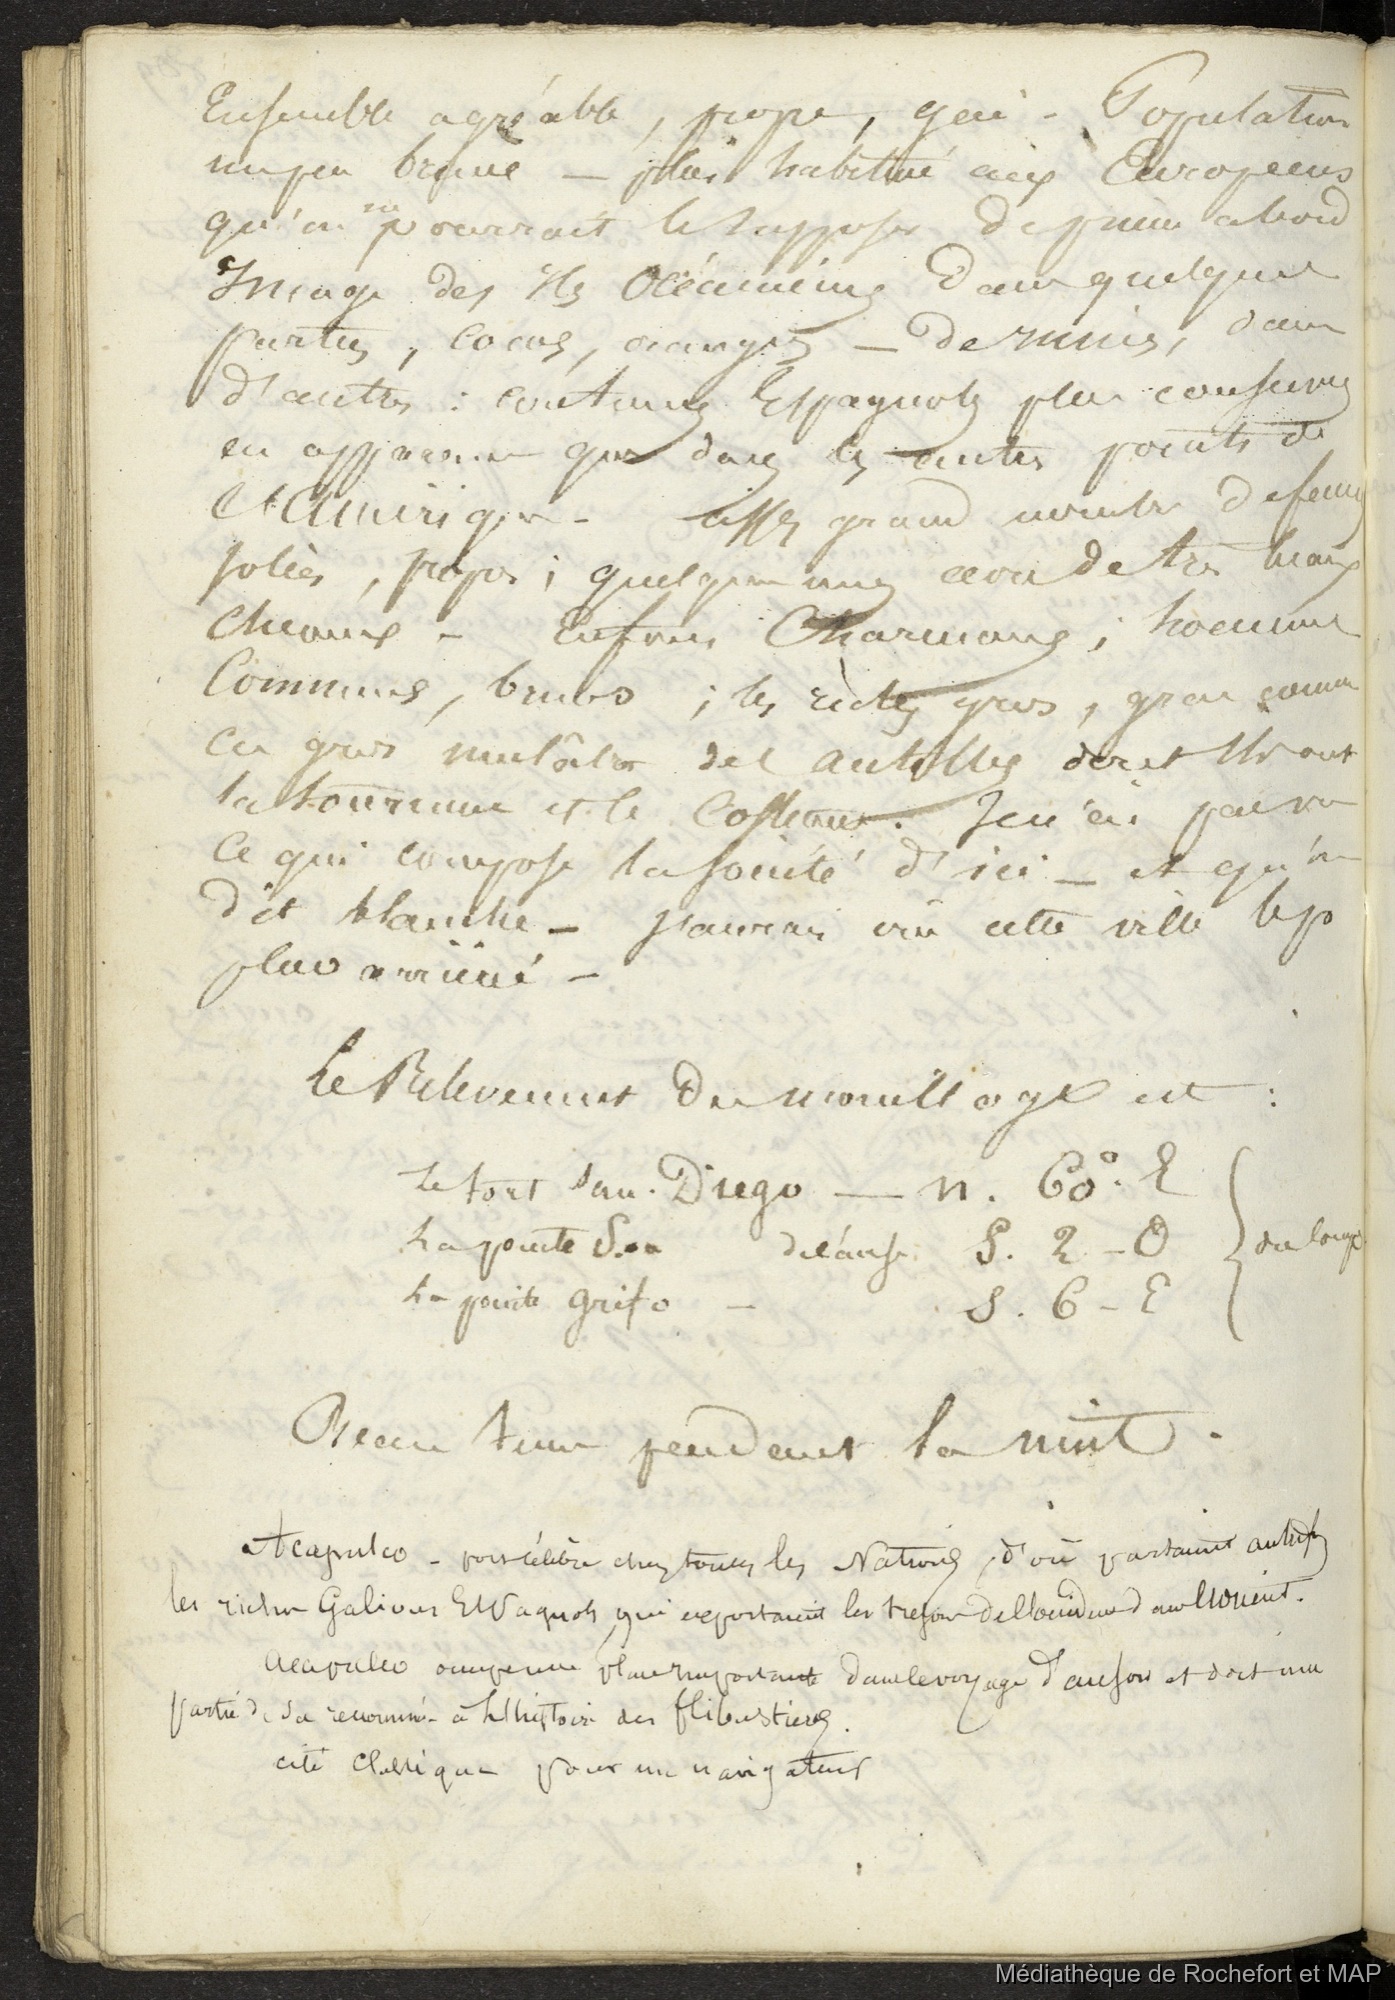 Ensemble agréable, propre, gai - Population
un peu brune — plus habitué aux Européens
qu'on ne pourrait le supposer de prime abord
Image des Iles Océaniennes dans quelques
parties, cocos, oranges — de ruines, dans
d'autres : coutumes Espagnoles plus conservées
en apparence que dans les autres points de
l'Amérique - assez grand nombre de femmes
jolies, propres ; quelques unes avec de très beaux
cheveux - Enfans Charmans ; hommes
Communs, bruns ; les riches gros, gras comme
ces gros mulâtres des antilles dont ils ont
la tournure et le Costume. Je n'ai pas vu
ce qui compose la société d'ici — et qu'on
dit blanche — J'aurais cru cette ville
plus ruinée —
Le Relevement du mouillage est :
Le fort San. Diego — N. 60°. E
La pointe de l'anse S. 2 - O
La pointe Grifo — S. 6 - E
du large
Beau tems pendant la nuit .
Acapulco - port célèbre chez toutes les Nations, d'où partaient autrefois
les riches Galions Espagnols, qui exportaient les tresors de l'occident dans l'orient.
Acapulco occupe une place importante dans le voyage d'anson et doit une
partie de sa renommée à l'histoire des flibustiers.
cité classique pour un navigateur
Médiathèque de Rochefort et MAP